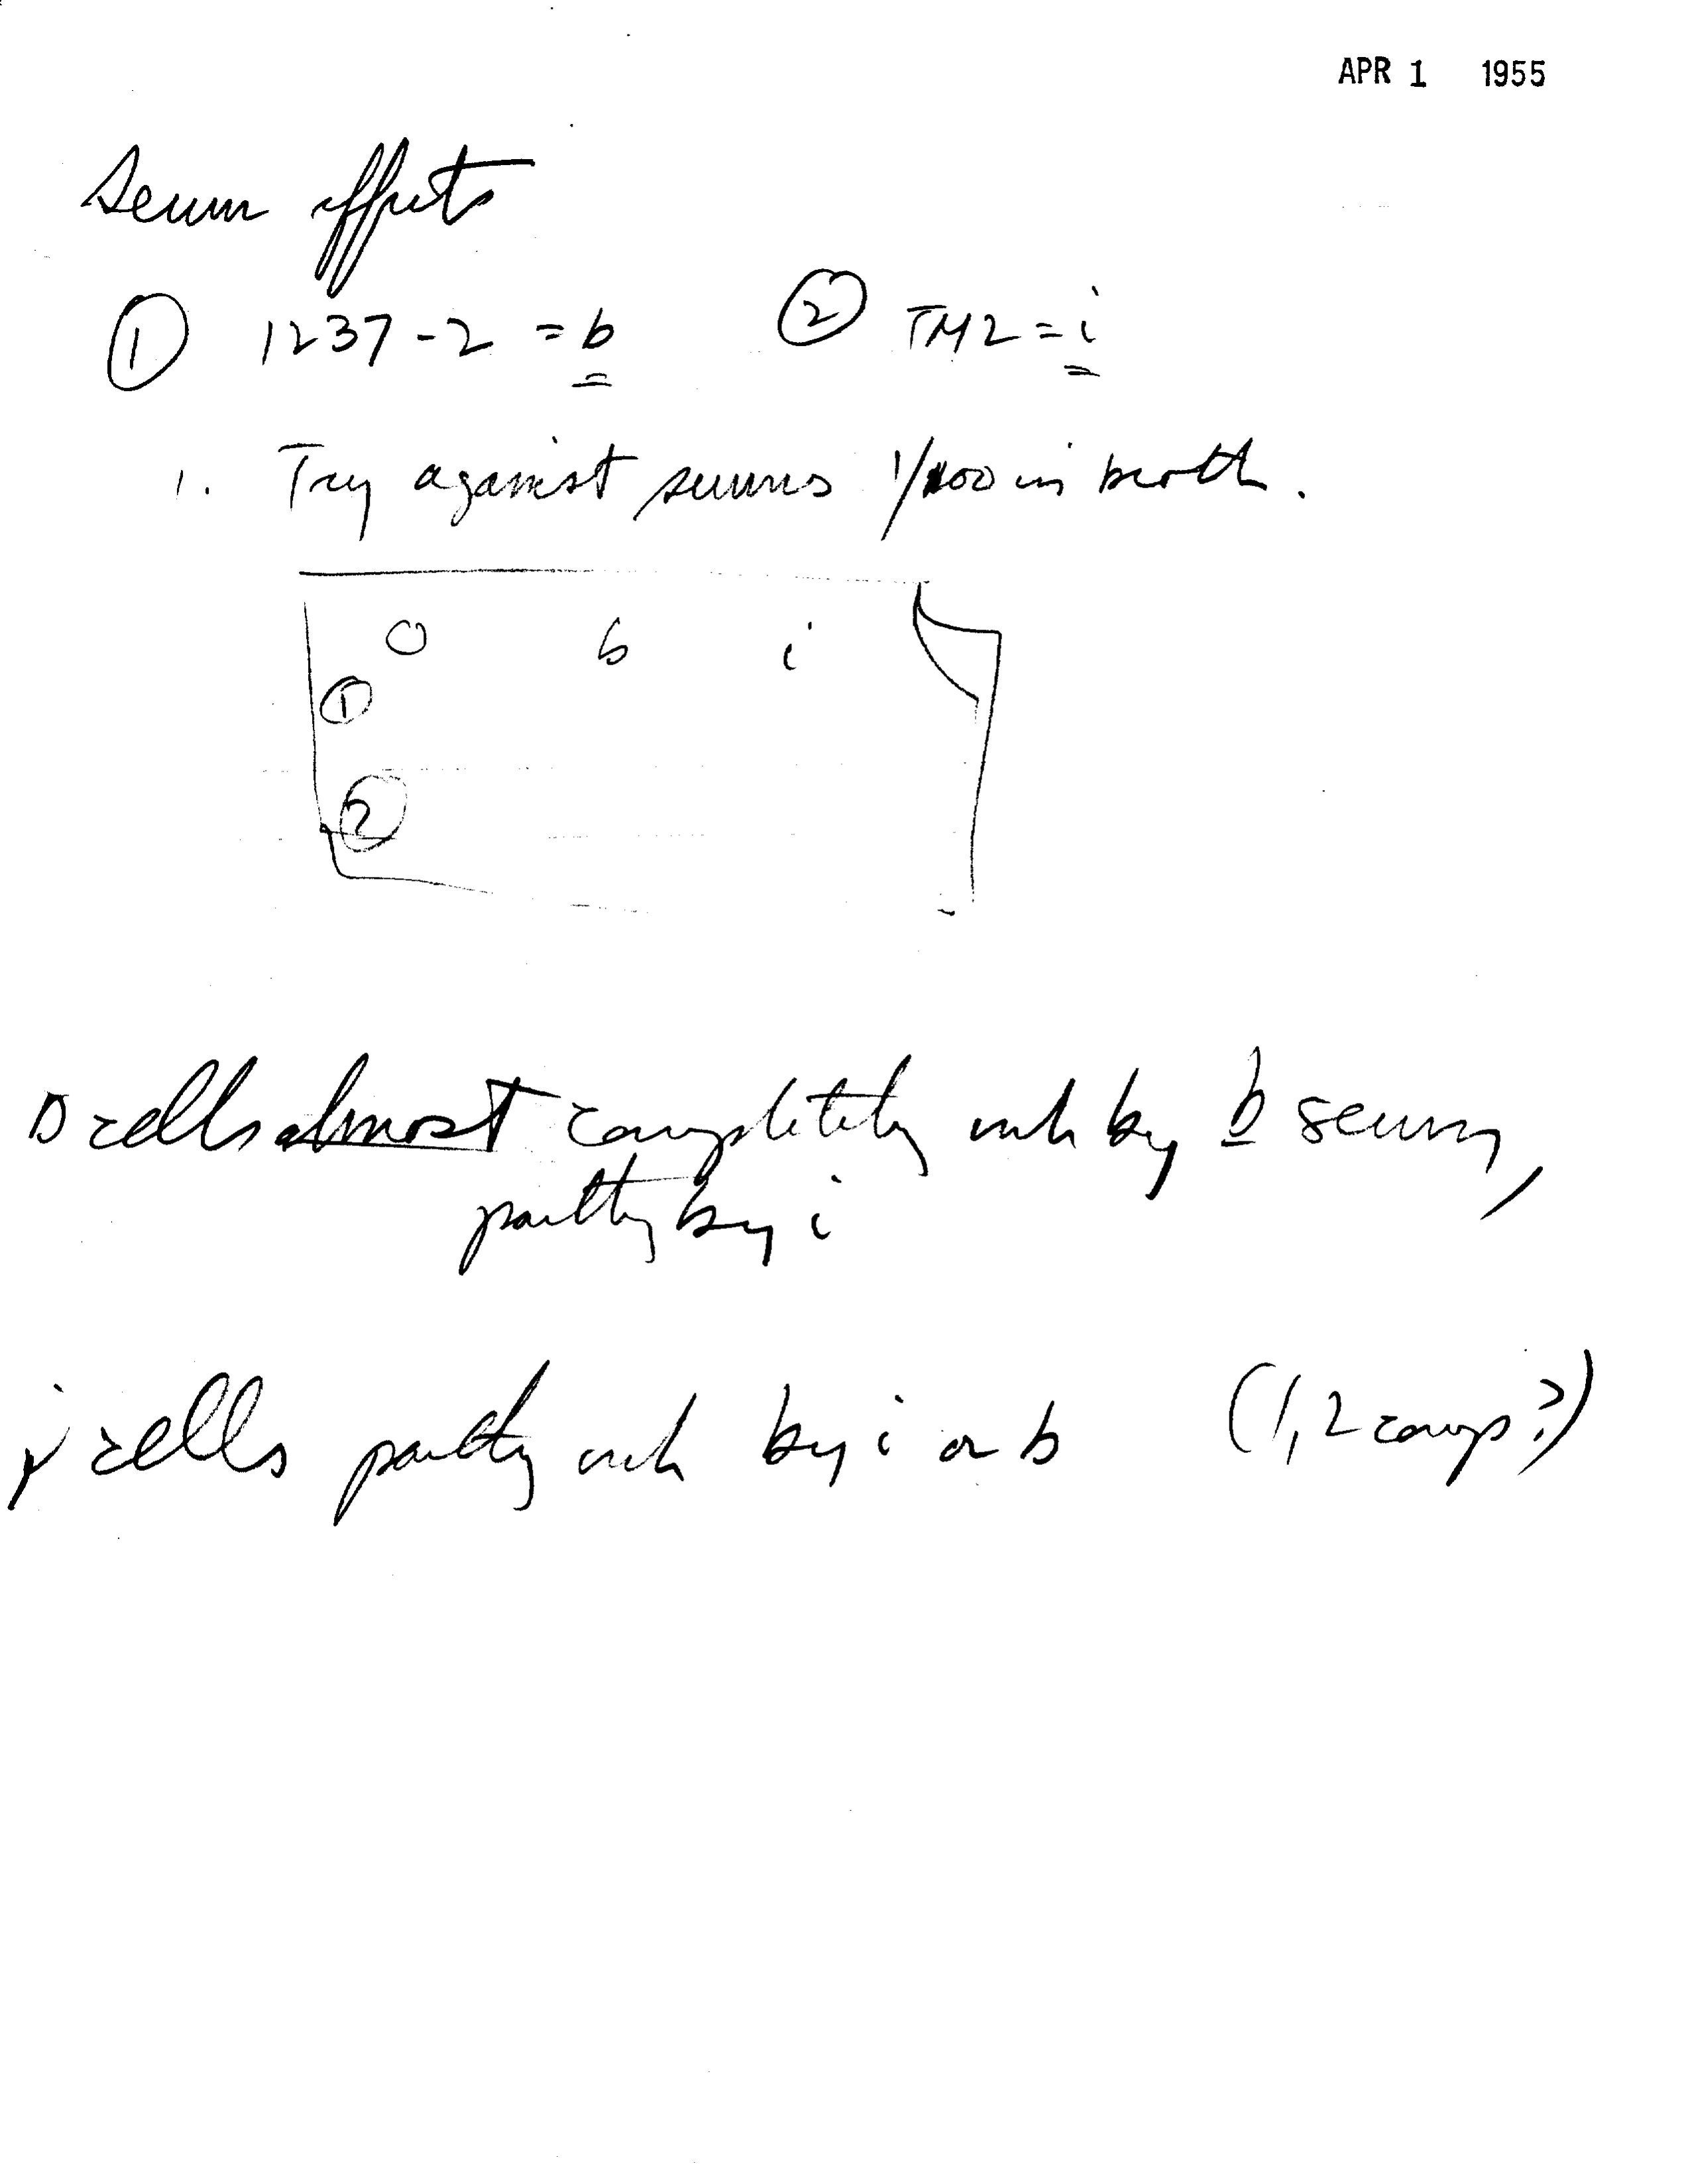 APR 1 1955
Serum effects
① 1237-2 = b ② TM2 = i
1. Try against serums 1/100 in broth.
0 b i
①
②
b cells almost completely inh by b serum,
partly by i
i cells partly inh by i or b (1,2 comp?)